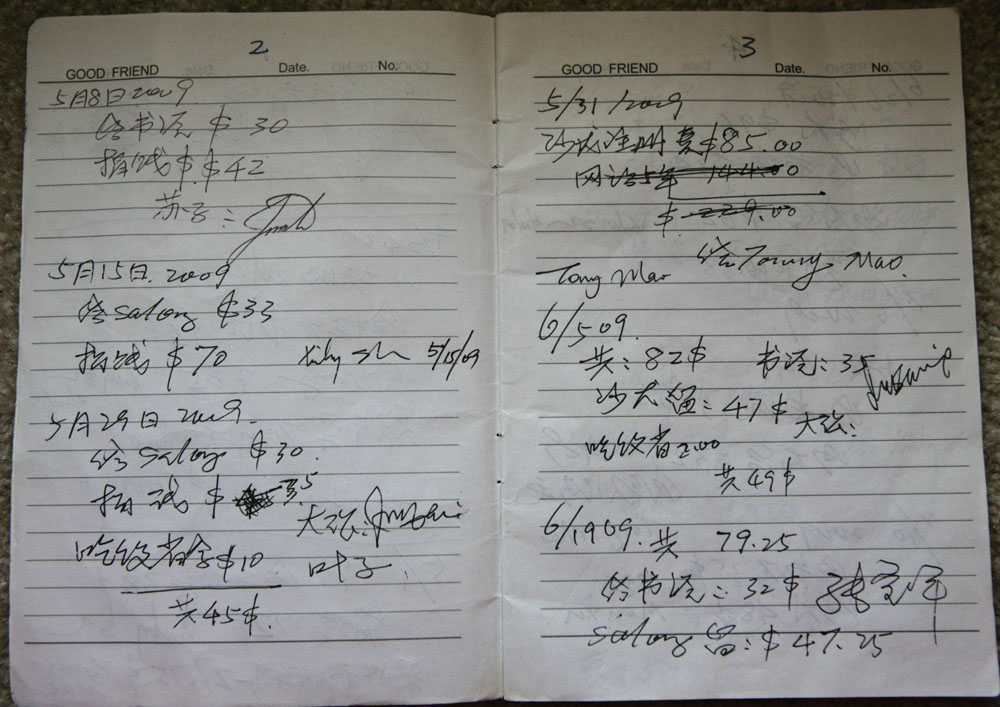 2
GOOD FRIEND Date. No.
5月8日2009
给书院 $ 30
捐钱 $ $42
苏子:
5月15日. 2009
给salong $33
捐钱 $70 5/15/09
5月29日 2009.
给Salong $30.
捐钱 $ 35
大张:
吃饭者舍$10
叶子.
共45$.
3
GOOD FRIEND Date. No.
5/31/2009
沙龙注册费$85.00
网站1年 144.00
$ 229.00
Tong Mao 给Tommy Mao.
6/5 09.
共: 82$ 书院: 35
沙龙留: 47$ 大张:
吃饭者2.00
共49$
6/19 09. 共 79.25
给书院: 32$
salong 留: $47.25